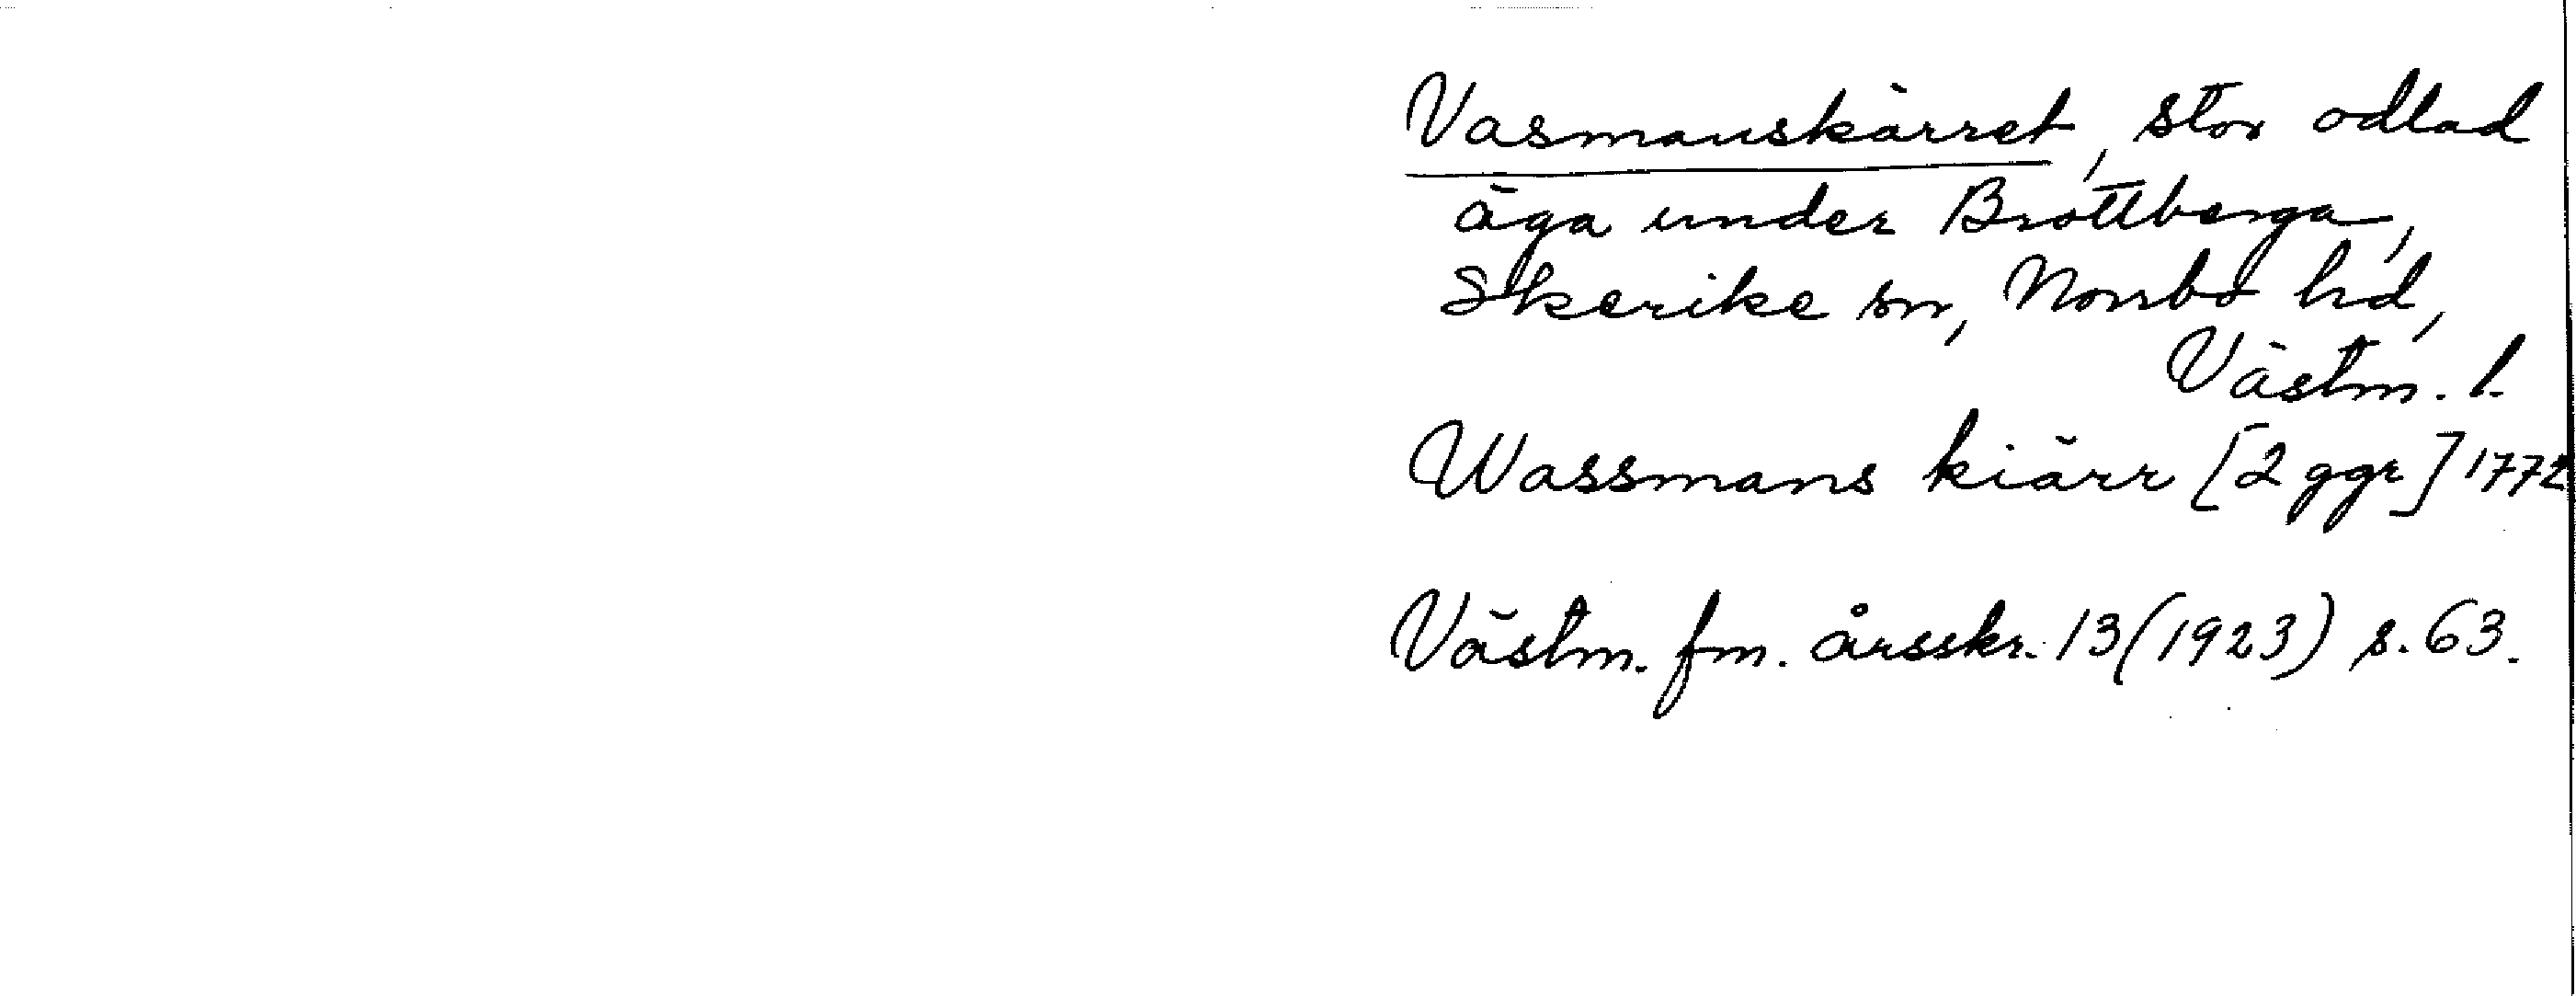 Vasmanskärret, stor odlad
äga under Brottberga,
Skerike sn, Norrbo hd,
Västm. l.
Wassmans kiärr [2 ggr] 1772
Västm. fm. årsskr. 13 (1923) s. 63.